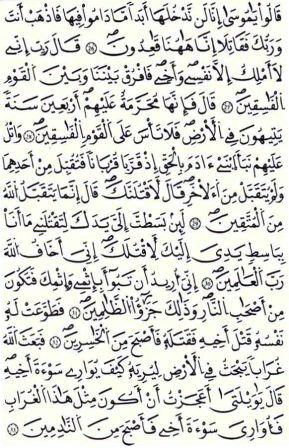 قَالُوا۟ يَٰمُوسَىٰٓ إِنَّا لَن نَّدْخُلَهَآ أَبَدًا مَّا دَامُوا۟ فِيهَا فَٱذْهَبْ أَنتَ
وَرَبُّكَ فَقَٰتِلَآ إِنَّا هَٰهُنَا قَٰعِدُونَ ٢٤ قَالَ رَبِّ إِنِّى
لَآ أَمْلِكُ إِلَّا نَفْسِى وَأَخِى فَٱفْرُقْ بَيْنَنَا وَبَيْنَ ٱلْقَوْمِ
ٱلْفَٰسِقِينَ ٢٥ قَالَ فَإِنَّهَا مُحَرَّمَةٌ عَلَيْهِمْ أَرْبَعِينَ سَنَةً
يَتِيهُونَ فِى ٱلْأَرْضِ فَلَا تَأْسَ عَلَى ٱلْقَوْمِ ٱلْفَٰسِقِينَ ٢٦ وَٱتْلُ
عَلَيْهِمْ نَبَأَ ٱبْنَىْ ءَادَمَ بِٱلْحَقِّ إِذْ قَرَّبَا قُرْبَانًا فَتُقُبِّلَ مِنْ أَحَدِهِمَا
وَلَمْ يُتَقَبَّلْ مِنَ ٱلْءَاخَرِ قَالَ لَأَقْتُلَنَّكَ قَالَ إِنَّمَا يَتَقَبَّلُ ٱللَّهُ
مِنَ ٱلْمُتَّقِينَ ٢٧ لَئِنۢ بَسَطتَ إِلَىَّ يَدَكَ لِتَقْتُلَنِى مَآ أَنَا۠
بِبَاسِطٍ يَدِىَ إِلَيْكَ لِأَقْتُلَكَ إِنِّىٓ أَخَافُ ٱللَّهَ
رَبَّ ٱلْعَٰلَمِينَ ٢٨ إِنِّىٓ أُرِيدُ أَن تَبُوٓأَ بِإِثْمِى وَإِثْمِكَ فَتَكُونَ
مِنْ أَصْحَٰبِ ٱلنَّارِ وَذَٰلِكَ جَزَٰٓؤُا۟ ٱلظَّٰلِمِينَ ٢٩ فَطَوَّعَتْ لَهُۥ
نَفْسُهُۥ قَتْلَ أَخِيهِ فَقَتَلَهُۥ فَأَصْبَحَ مِنَ ٱلْخَٰسِرِينَ ٣٠ فَبَعَثَ ٱللَّهُ
غُرَابًا يَبْحَثُ فِى ٱلْأَرْضِ لِيُرِيَهُۥ كَيْفَ يُوَٰرِى سَوْءَةَ أَخِيهِ
قَالَ يَٰوَيْلَتَىٰٓ أَعَجَزْتُ أَنْ أَكُونَ مِثْلَ هَٰذَا ٱلْغُرَابِ
فَأُوَٰرِىَ سَوْءَةَ أَخِى فَأَصْبَحَ مِنَ ٱلنَّٰدِمِينَ ٣١